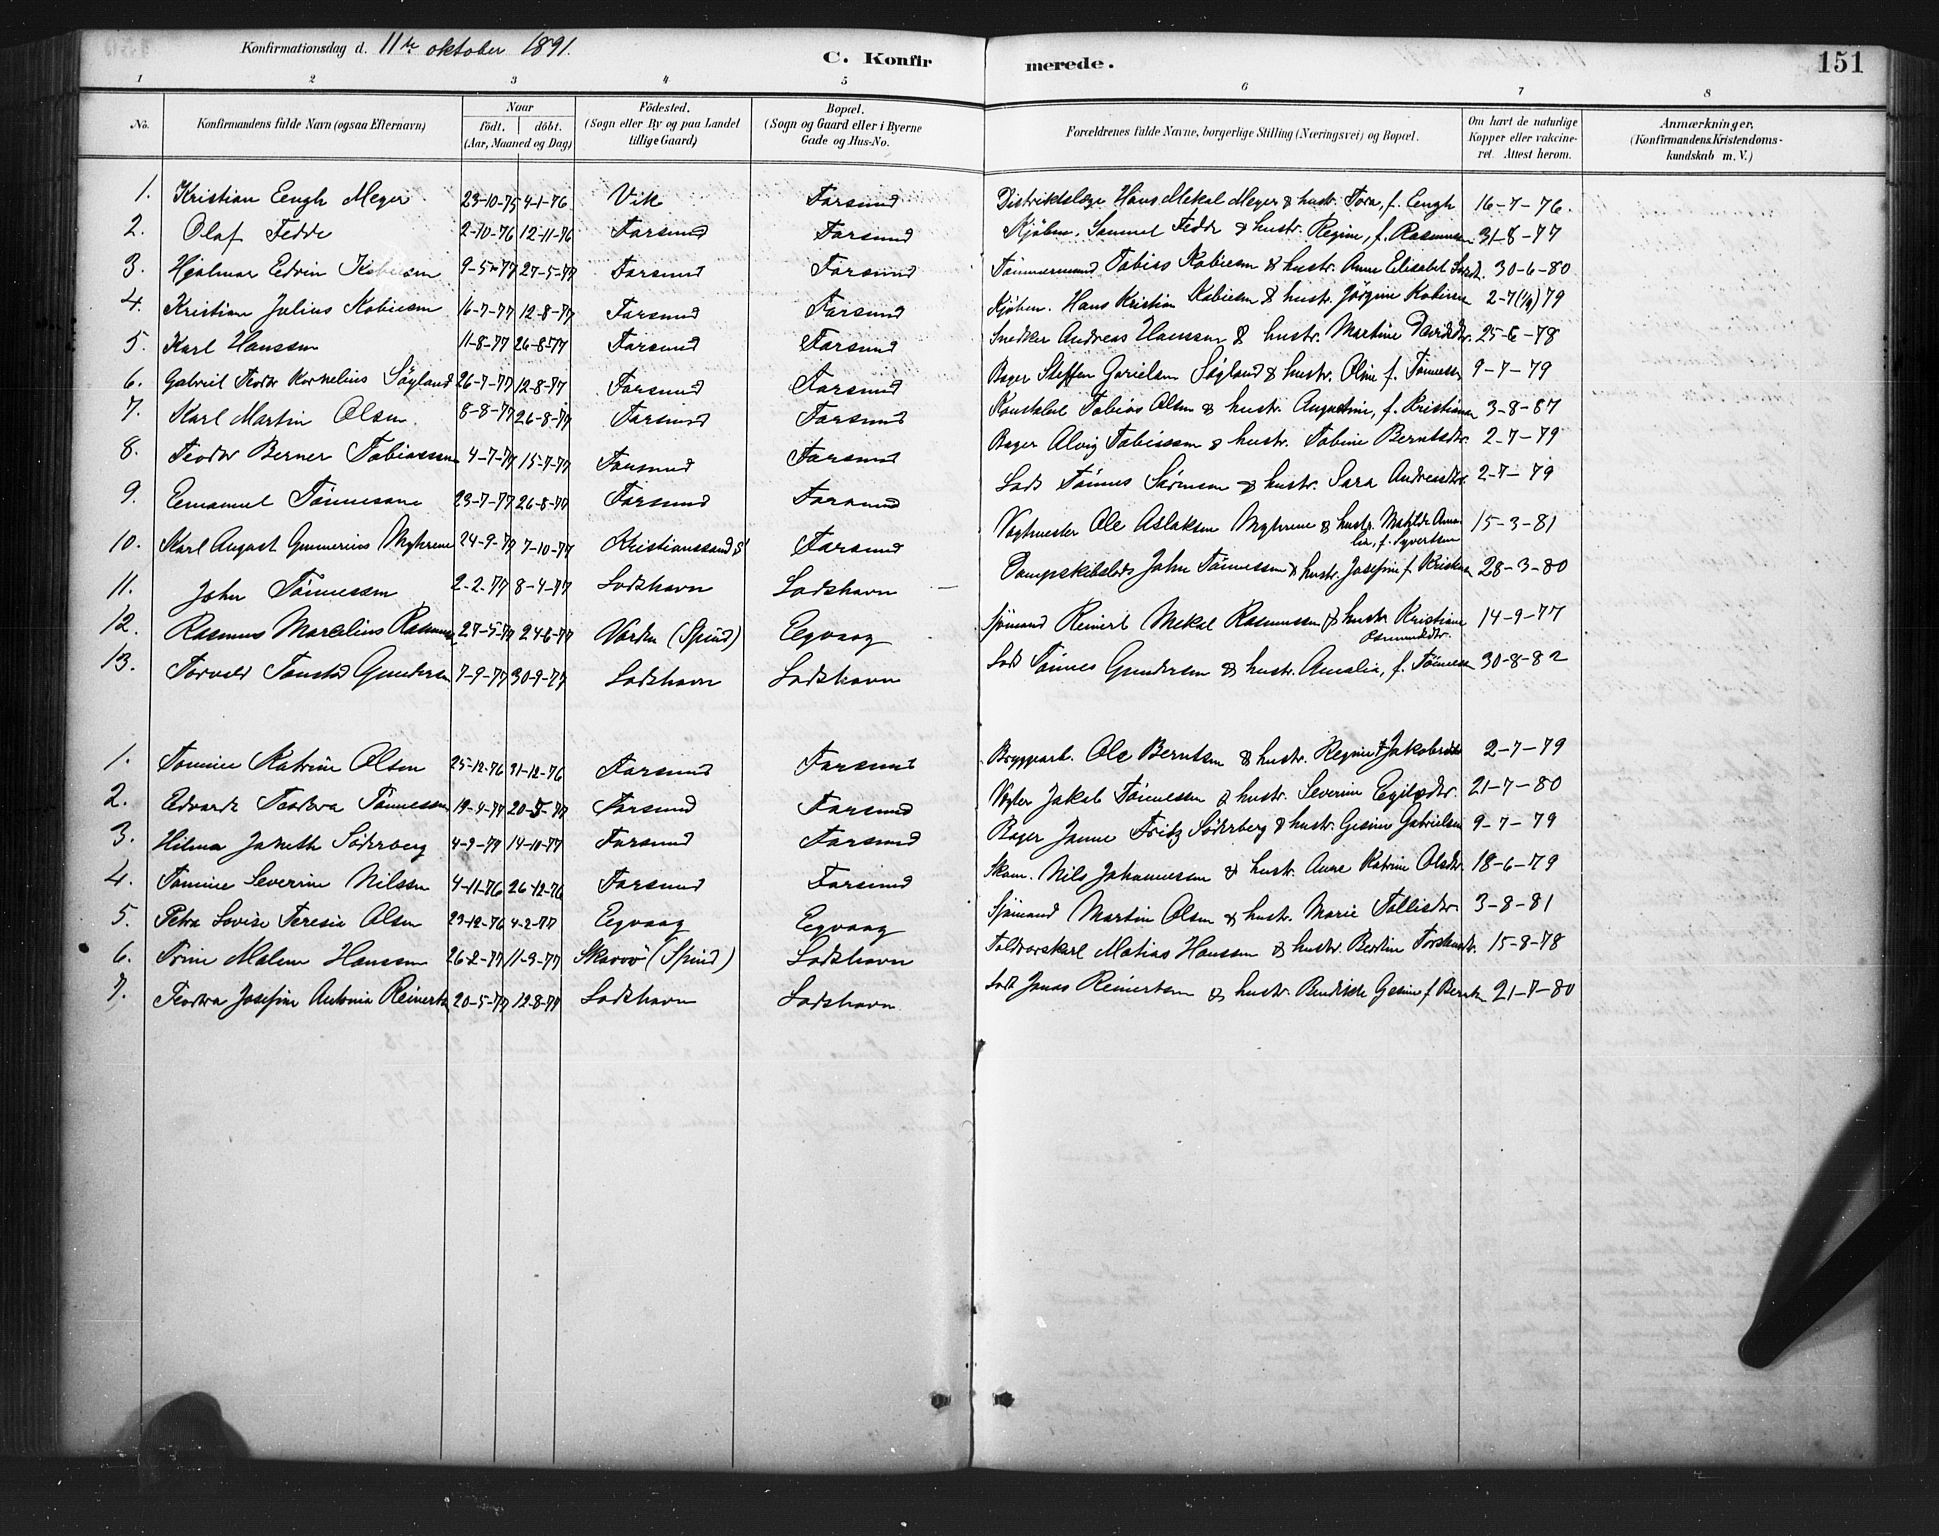 Konfirmationsdag d. 11te oktober 1891.
C. Konfirmerede.
151
1 2 3 4 5 6 7 8
No. Konfirmandens fulde Navn (ogsaa Efternavn) Naar födt. döbt. (Aar, Maaned og Dag) Födested. (Sogn eller By og paa Landet tillige Gaard) Bopæl. (Sogn og Gaard eller i Byerne Gade og Hus-No. Forældrenes fulde Navne, borgerlige Stilling (Næringsvei) og Bopæl. Om havt de naturlige Kopper eller vakcineret. Attest herom. Anmærkninger. (Konfirmandens Kristendomskundskab m. V.)
1. Kristian Eengh Meyer 23-10-75 4-1-76 Vik Farsund Distriktslæge Hans Mekal Meyer & hustr. Tora, f. Eengh 16-7-76.
2. Olaf Fedde 2-10-76 12-11-76 Farsund Farsund Kjøbm. Samuel Fedde & hustr. Regine, f. Rasmussen 31-8-77
3. Hjalmar Edvin 9-5-77 27-5-77 Farsund Farsund Tømmermand Tobias & hustr. Anne Elisabet 30-6-80
4. Kristian Julius 16-7-77 12-8-77 Farsund Farsund Kjøbm. Hans Kristian & hustr. Jørgine 2-7 79
5. Karl Hanssen 11-8-77 26-8-77 Farsund Farsund Snedker Andreas Hanssen & hustr. Martine Davidsdtr. 25-6-78
6. Gabriel Teodor Kornelius Søgland 26-7-77 12-8-77 Farsund Farsund Bager Steffen Søgland & hustr. Oline f. Tønnessen 9-7-79
7. Karl Martin Olsen 8-8-77 26-8-77 Farsund Farsund Konstabel Tobias Olsen & hustr. Augustine, f. Kristiansen 3-8-87
8. Teodor Berner Tobiassen 4-7-77 15-7-77 Farsund Farsund Bager Alvig Tobiassen & hustr. Tobine Berntsdtr. 2-7-79
9. Emanuel Tønnesane 23-7-77 26-8-77 Farsund Farsund Lods Tønnes Sørensen & hustr. Sara Andreasdtr. 2-7-79
10. Karl August Gunnerius Myhrene 24-9-77 7-10-77 Kristianssand S Farsund Vagtmester Ole Aslaksen Myhrene & hustr. Matilde f. Syvertsen 15-3-81
11. John Tønnessen 2-2-77 8-4-77 Lodshavn Lodshavn Dampskibslods John Tønnessen & hustr. Josefine f. 28-3-80
12. Rasmus Marelius Rasmussen 27-5-77 24-6-77 Varden (Spind) Egvaag Sjømand Reinert Mekal Rasmussen & hustr. Kristiane Osmundsdtr. 14-9-77
13. Torvald Gundersen 7-9-77 30-9-77 Lodshavn Lodshavn Lods Tønnes Gundersen & hustr. Amalia, f. Tønnessen 30-8-82
1. Tomine Katrine Olsen 25-12-76 31-12-76 Farsund Farsund Bryggearb. Ole Berntsen & hustr. Regine Jakobsdtr 2-7-79
2. Edvarde Teodora Tønnessen 19-4-77 20-5-77 Farsund Farsund Vægter Jakob Tønnessen & hustr. Severine Egilsdtr. 21-7-80
3. Hilma Janette Söderberg 4-9-77 14-10-77 Farsund Farsund Bager Janne Fritz Söderberg & hustr. Gesine Gabrielsen 9-7-79
4. Tomine Severine Nilssen 4-11-76 26-12-76 Farsund Farsund Skom. Nils Johannessen & hustr. Anne Katrine Olsdtr. 18-6-79
5. Petra Lovise Teresie Olsen 23-12-76 4-2-77 Egvaag Egvaag Sjømand Martin Olsen & hustr. Marie Tollisdtr 3-8-81
6. Trine Malene Hanssen 26-2-77 11-3-77 Skarvø (Spind) Lodshavn Toldoorskarl Matias Hanssen & hustr. Bertine 15-8-78
7. Teodora Josefine Antonie Reinertsen 20-5-77 12-8-77 Lodshavn Lodshavn Lods Jonas Reinertsen & hustr. Bendikte Gesine f. Berntsen 21-7-80